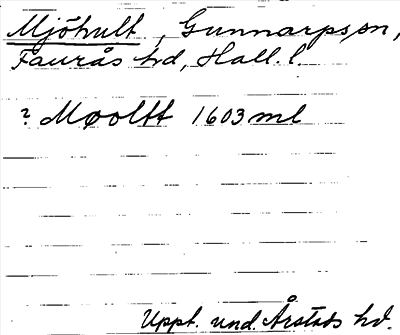 Mjöhult, Gunnarps sn,
Faurås hd, Hall. l.
? Møoltt 1603 ml
Uppt. und. Årstads hd.